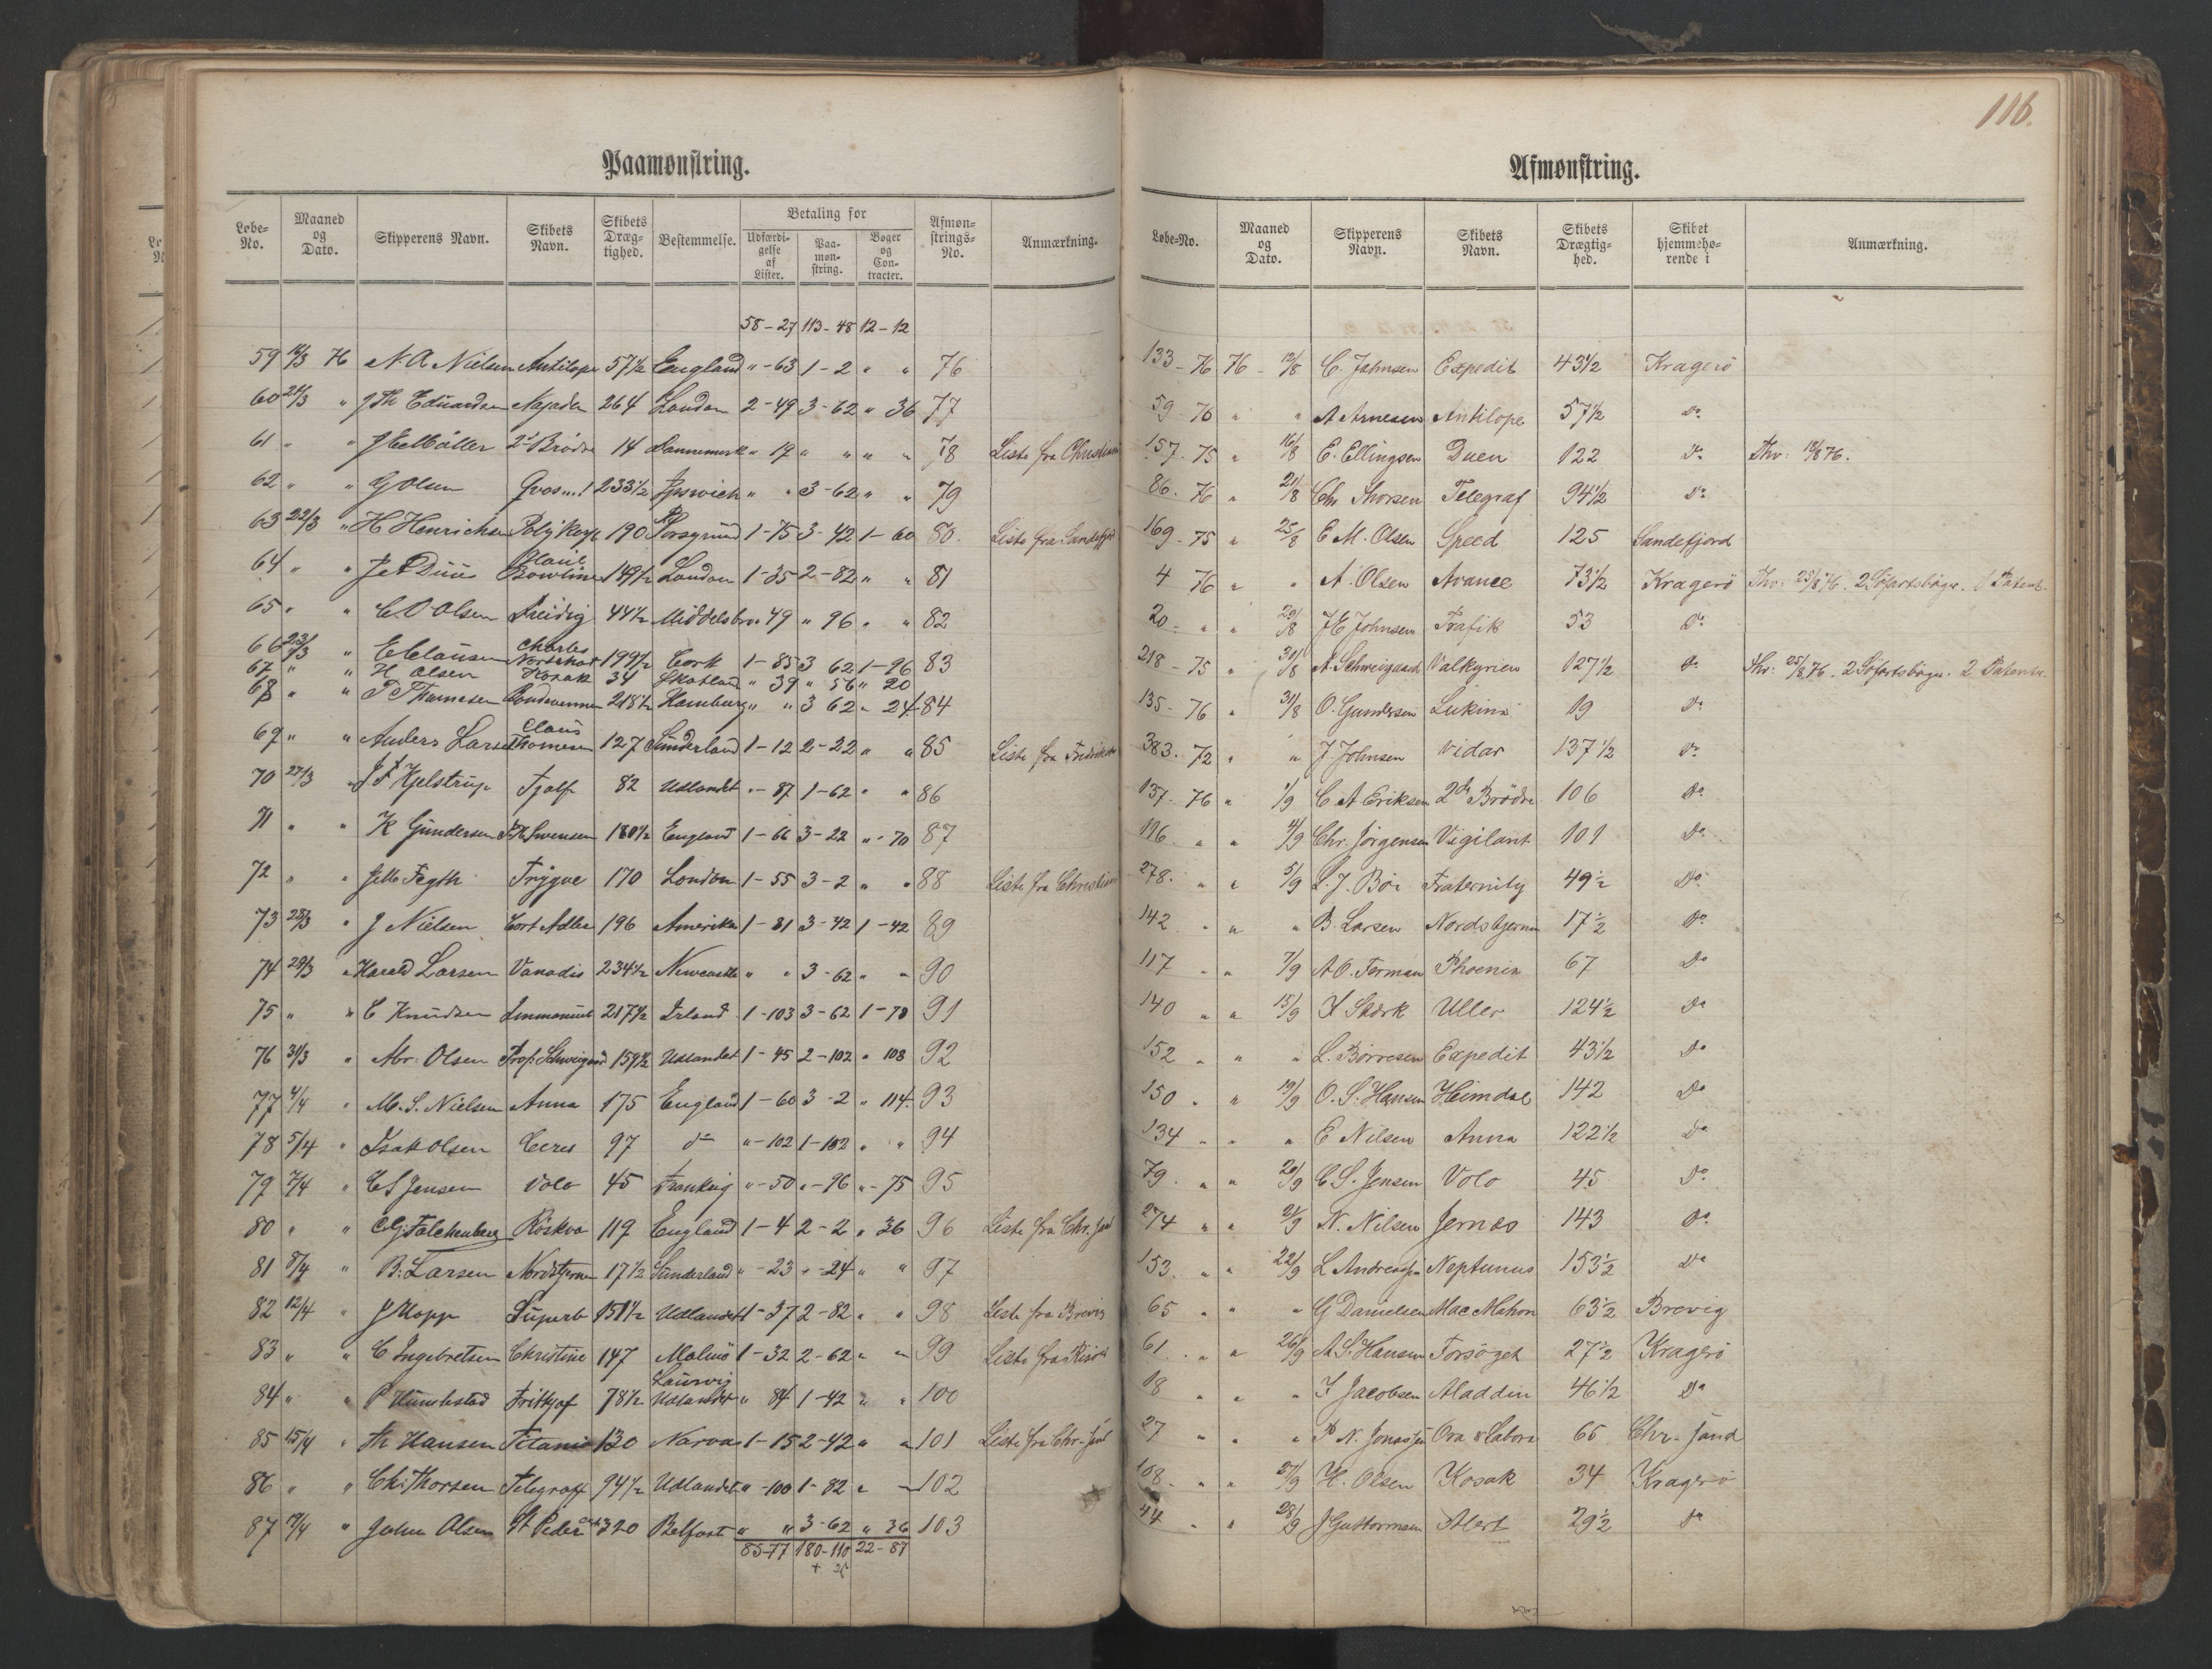 116.
Paamønstring.
Løbe-No. Maaned og Dato. Skipperens Navn. Skibets Navn. Skibets Dræg-tighed. Bestemmelse. Betaling for Udfærdi-gelse af Lister. Paa-møn-string. Bøger og Con-tracter. Afmøn-strings-No. Anmærkning.
58-27 113-48 12-12
59 76 N. A Nielsen Antilope 57 1/2 England " - 63 1 - 2 " " 76
60 21/3 " J Th Eduardsen Najaden 264 London 2-49 3-62 " 36 77
61 " " 2de Brødre 14 Dannemark " 19 " " " " 78 Liste fra
62 " " G Olsen 233 1/2 Ipswich " " 3-62 " " 79
63 22/3 " H Henrichsen 190 Porsgrund 1-75 3-42 1-60 80. Liste fra Sandefjord
64 " " 149 1/2 London 1-35 2-82 " " 81
65 " " C. O Olsen Freidig 44 1/2 " 49 " 96 " " 82
66 23/3 " E Clausen Charles 199 1/2 Cork 1-85 3 62 1-96 83
67 " " H Olsen Kosak 34 Skotland " 39 " 56 " 20
68 " " T Thomsen 218 1/2 Hamburg " " 3 62 - 24 84
69 " " Anders Larsen Claus Thomesen 127 Sunderland 1-12 2-22 " " 85 Liste fra
70 27/3 " Kjelstrup Fjalf 82 Udlandet " - 87 1-62 " " 86
71 " " K Gundersen 180 1/2 England 1-66 3-22 " - 70 87
72 " " Trygve 170 London 1-55 3-2 " " 88 Liste fra
73 28/3 " J Nielsen Cort Adler 196 Amerika 1-81 3-42 1-42 89
74 29/3 " Harald Larsen Vanadis 234 1/2 Newcastle " " 3-62 " " 90
75 " " C Knudsen Immanuel 217 1/2 Irland 1-103 3-62 1-78 91
76 31/3 " Abr: Olsen Prof: Schweigaard 159 1/2 Udlandet 1-45 2-102 " 108 92
77 4/4 " M. S. Nielsen Anna 175 England 1-60 3-2 " 114. 93
78 5/4 " Isak Olsen Ceres 97 do " - 102 1-102 " " 94
79 7/4 " C S Jensen Volo 45 Frankrig " - 50 " - 96 " - 75 95
80 " " C G Falchenberg Röskva 119 England 1-4 2-2 " 36 96 Liste fra Chr. sand
81 8/4 " B: Larsen Nordstjernen 17 1/2 Sunderland " - 23 " - 24 " " 97
82 12/4 " J Klopp Superb 151 1/2 Udlandet 1-37 2-82 " " 98 Liste fra Brevig
83 " " C Ingebretsen Christine 147 Malmö 1-32 2-62 " " 99 Liste fra Risør
84 " " P Frithjof 78 1/2 Laurvig Udlandet " 84 1-42 " " 100
85 15/4 " Th Hansen Titania 130 Narva 1-15 2-42 " " 101 Liste fra Chr-sand
86 " " Chr: Thorsen Telegraff 94 1/2 Udlandet " - 100 1-82 " " 102
87 " John Olsen St Peder 320 Belfast " " 3-62 " 36 103
85-77 180-110 22-87
Afmønstring.
Løbe-No. Maaned og Dato. Skipperens Navn. Skibets Navn. Skibets Drægtig-hed. Skibet hjemmehø-rende i Anmærkning.
133-76 76 - 12/8 C. Johnsen Expedit 43 1/2 Kragerö
59-76 " " A Arnesen Antilope 57 1/2 Do
157-75 " 16/8 E. Ellingsen Duen 122 Do
86.76 " 21/8 Chr Thorsen Telegraf 94 1/2 Do
169-75 " 25/8 E M. Olsen Speed 125 Sandefjord
4 76 " " A Olsen Avance 73 1/2 Kragerö 25/8 76. 2 Söfartsböger. 1 Patent.
20 - " " 29/8 J E Johnsen Trafik 53 Do
218-75 " 30/8 A Schweigaard Valkyrien 127 1/2 Do 25/8 76. 2 Söfartsböger. 2 Patenter
135-76 " 31/8 O. Gundersen Lukina 19 Do
383.72 " " J. Johnsen Vidar 137 1/2 Do
137.76 " 1/9 C A Eriksen 2de Brödre 106 Do
116 " " 4/9 Chr. Jörgensen Vigilant 101 Do
278. " " 5/9 L. J. Böe Fraternity 49 1/2 Do
142 " " " B. Larsen Nordstjernen 17 1/2 Do
117 " " 7/9 A O. Terman Phoenix 67 Do
140 " " 15/9 Uller 124 1/2 Do
152 " " " L. Börresen Expedit 43 1/2 Do
150 " " 19/9 O. S. Hansen Heimdal 142 Do
134 " " " E Nilsen Anna 122 1/2 Do
79. " " 20/9 C S. Jensen Volo 45 Do
274 " " 21/9 N. Nilsen Jernæs 143 Do
153. " " 22/9 L Andreassen Neptunus 153 1/2 Do
65 " " " G Danielsen Mac Mahon 63 1/2 Brevig
61 " " 26/9 A S. Hansen Forsöget 27 1/2 Kragerö
18 " " " Jacobsen Aladdin 46 1/2 Do
27 " " " P N. Jonassen Ora & Labora 65 Chr. sand
108 " " 27/9 H. Olsen Kosak 34 Kragerö
44 " " 28/9 J Guttormsen Alert 29 1/2 Do